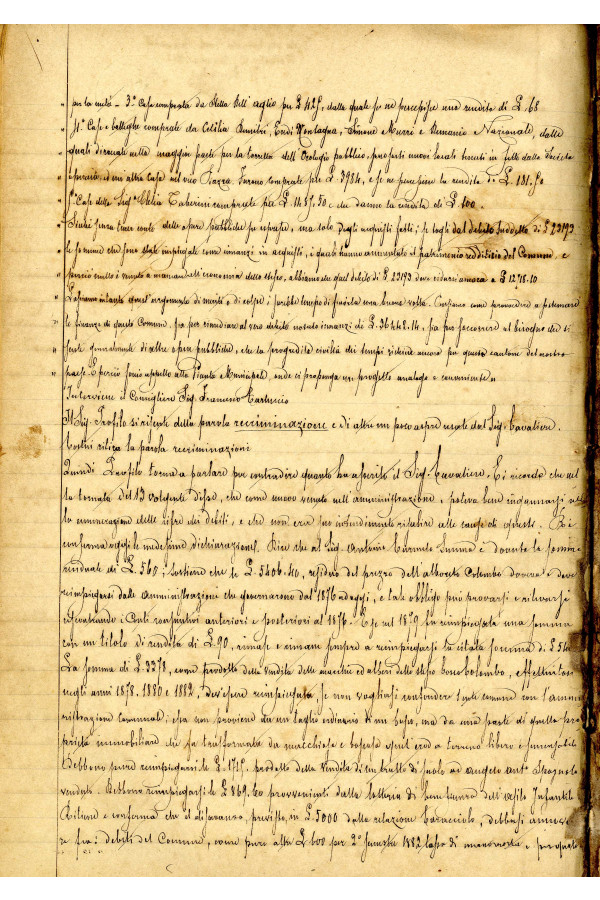 " per la metà – 3° Casa comprata da Stella Dell'aglio per £ 425, dalla quale se ne percepisce una rendita di £. 68
" 4° Case e botteghe comprate da Cecilia Ruggieri, Montagna, Simone Murri e Demanio Nazionale, dalle
" quali dirocate nella maggior parte per la torretta dell'Orologio pubblico, nuovi locali tenuti in fitto dalla Società
" operaia, ed un'altra casa nel vico Piazza, furono comprate per £ 3984, e se ne percepisce la rendita di £. 181.50
" 5° Casa della Sig.ª Clelia Taberini comprata per £. 1457.50 e che danno la rendita di £. 100.
" Sicché senza tener conto delle opere pubbliche se, ma solo degli acquisti fatti; se togli dal debito suddetto di £ 23193
" le somme che sono state impiegate come rinvanzi in acquisti, i quali hanno aumentato il patrimonio redditizio del Comune, e
" perciò nulla è venuto a mancare nell'economia dello stesso, abbiamo che quel debito di £ 23193 deve ridursi ancora a £ 12718.10
" Lasciamo intanto quest'argomento di morti, e di colpe; e sarebbe tempo di finirla una buona volta. Pensiamo come provvedere a sistemare
" le finanze di questo Comune, sia per rimediare al vero debito notato innanzi di £. 36442.14, sia per soccorrere al bisogno che si
" sente generalmente di altre opere pubbliche, che la progredita civiltà dei tempi richiede ancora per questo cantone del nostro
" paese. E perciò faccio appello alla Giunta Municipale, onde ci proponga un progetto analogo e conveniente "
Interviene il Consigliere Sig. Francesco Cartuccio
Il Sig. Profilo si risente della parola recriminazione e di altre un poco aspre usate dal Sig. Cavaliere.
Costui ritira la parola recriminazione
Quindi Profilo torna a parlare per contraddire quanto ha asserito il Sig. Cavaliere. Ei ricorda che nel
la tornata del 13 volgente disse, che come nuovo venuto nell'amministrazione, poteva bene ingannarsi nel
la enumerazione delle cifre dei debiti, e che non era suo intendimento risalire alle cause di questi. Ora ei
conferma oggi le medesime dichiarazioni. Dice che al Sig. Antonio Carmelo Summa è dovuta la somma
residuale di £. 560; sostiene che le £. 5406.40, residuo del prezzo dell'alboreto Colombo dovea e deve
reimpiegarsi dalle Amministrazioni che governarono dal 1876 ad oggi, e tale obbligo può provarsi e rilevarsi
riscontrando i Conti consuntivi anteriori e posteriori al 1876. E se nel 1879 fu reimpiegata una somma
con un titolo di rendita di £. 90, rimase e rimane sempre a reimpiegarsi la citata somma di £. 5406
La somma di £. 3378, come prodotto della vendita delle macchie ed alberi dello stesso bosco Colombo, effettuitasi
negli anni 1878. 1880 e 1882, dev'essere reimpiegata, se non vogliasi confondere l'ente comune con l'ammi
nistrazione comunale; essa non proviene da un taglio ordinario di un bosco, ma da una parte di quella pro
prietà immobiliare che fu trasformata da macchiosa e boscosa qual'era a terreno libero e seminabile
Debbono pure reimpiegarsi le £. 1715. prodotto della vendita di un tratto di suolo ad Angelo Ant.°
venduto. Debbono reimpiegarsi le £ 869.40 provvenienti dalla lotteria di beneficenza dell'asilo Infantile
Ritiene e conferma che il disavanzo, previsto, in £. 5000 dalla relazione Caracciolo, debbasi annove
re fra i debiti del Comune, come pure altre £ 600 per 2° semestre 1882 tassa di manomorta e per quota